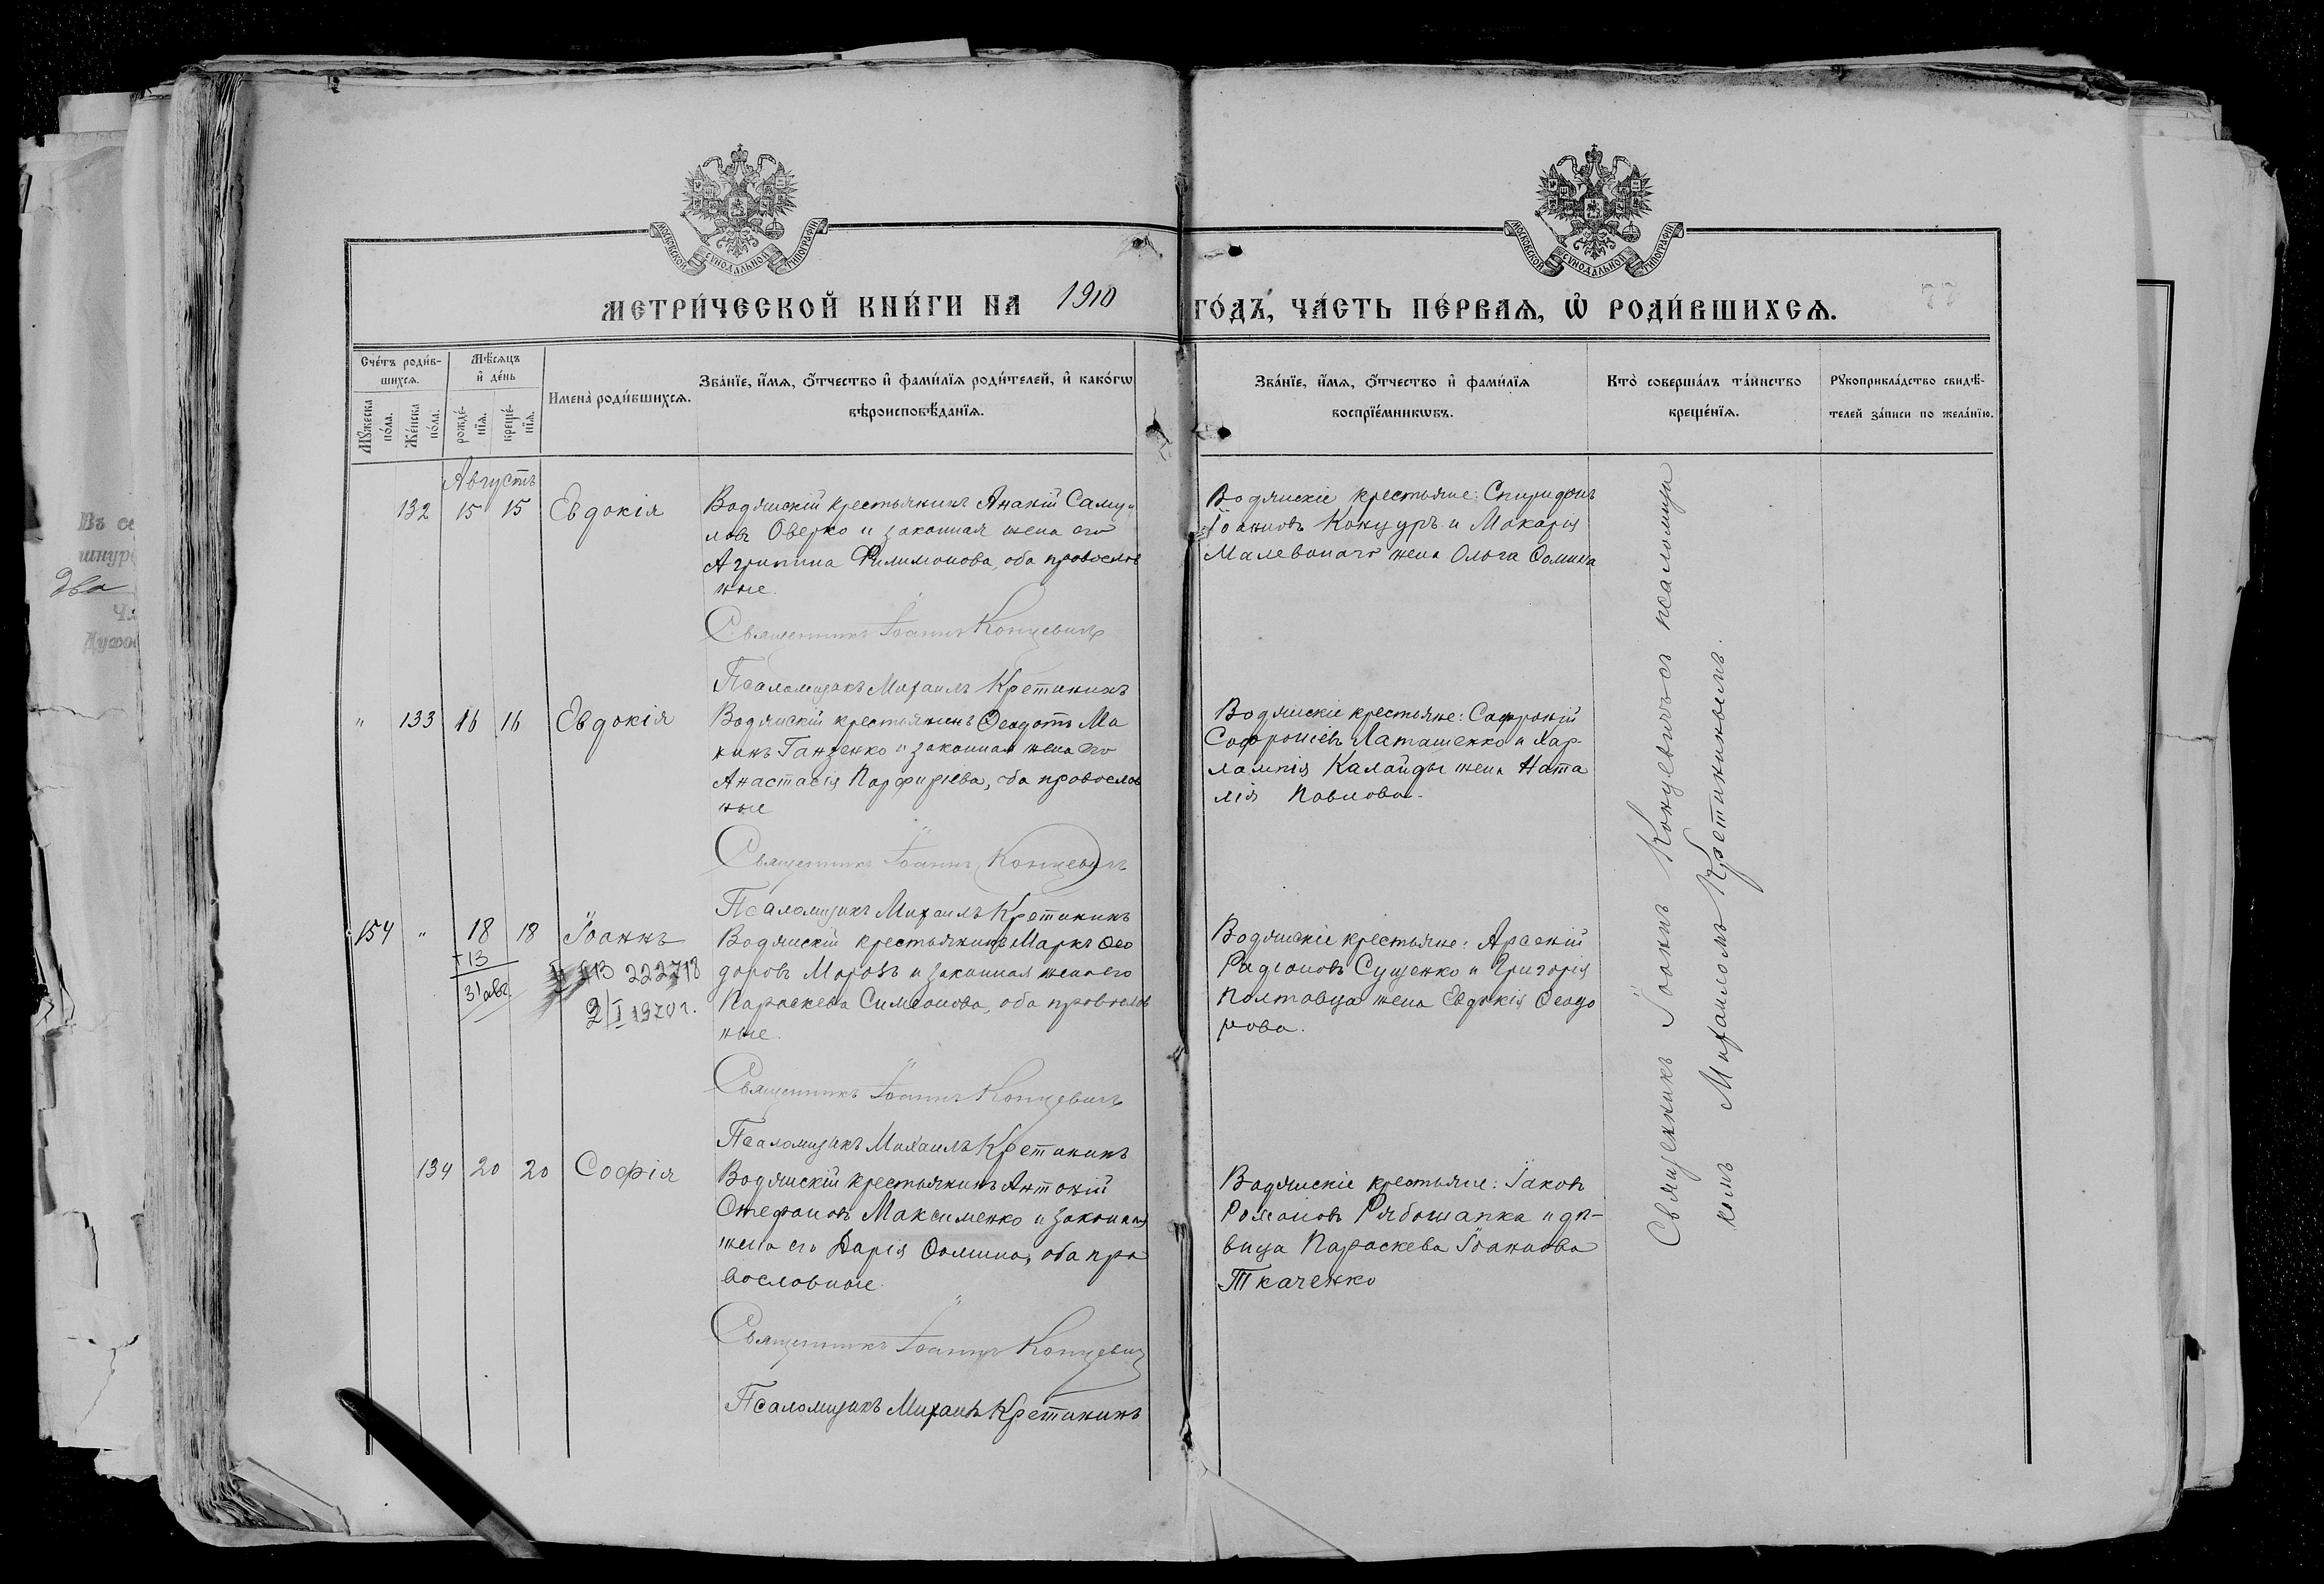 МОСКОВСКОЙ СѴНОДАЛЬНОЙ ТИПОГРАФІИ
МОСКОВСКОЙ СѴНОДАЛЬНОЙ ТИПОГРАФІИ
МЕТРИ́ЧЕСКОЙ КНИ́ГИ НА 1910 ГО́ДЪ, ЧА́СТЬ ПЕ́РВАѦ, Ѡ҆ РОДИ́ВШИХСѦ.
77
Сче́тъ роди́в-
шихсѧ.
Мꙋ́жеска
по́ла.
Же́нска
по́ла.
Мѣ́сѧцъ
и҆ де́нь
рожде́-
нїѧ.
креще́-
нїѧ.
Имена̀ роди́вшихсѧ.
Зва́нїе, и҆́мѧ, ѻ҆́тчество и҆ фами́лїѧ роди́телей, и҆ како́гѡ
вѣроисповѣ́данїѧ.
Зва́нїе, и҆́мѧ, ѻ҆́тчество и҆ фами́лїѧ
воспрїе́мниковъ.
Кто̀ соверша́лъ та́инство
креще́нїѧ.
Рꙋкоприкла́дство свидѣ́-
телей за́писи по жела́нїю.
Августъ
132 15 15 Евдокія
Водянскій крестьянинъ Ананій Самуи
ловъ Оверко и законная жена его
Агрипина Филимонова, оба православ
ные.
Священникъ Іоаннъ Концевичъ
Псаломщикъ Михаилъ Кретининъ
Водянскіе крестьяне: Спиридонъ
Іоанновъ Коцуръ и Макарія
Малеванаго жена Ольга Ѳомина
" 133 16 16 Евдокія
Водянскій крестьянинъ Ѳеодотъ Ма
кинъ Ганзенко и законная жена его
Анастасія Парфиріева, оба православ
ные
Священникъ Іоаннъ Концевичъ
Псаломщикъ Михаилъ Кретининъ
Водянскіе крестьяне: Софроній
Софроніевъ Латашенко и Хар-
лампія Калайды жена Ната
лія Павлова.
154 " 18 18 Іоаннъ
+13
31 авг.
222718
2/I 1970 г.
Водянскій крестьянинъ Маркъ Ѳео
доровъ Морозъ и законная жена его
Параскева Симеонова, оба православ
ные.
Священникъ Іоаннъ Концевичъ
Псаломщикъ Михаилъ Кретининъ
Водянскіе крестьяне: Арсеній
Радіоновъ Сущенко и Григорія
Полтавца жена Евдокія Ѳеодо
рова.
134 20 20 Софія
Водянскій крестьянинъ Антоній
Стефановъ Максименко и законная
жена его Дарія Ѳомина, оба пра
вославные.
Священникъ Іоаннъ Концевичъ
Псаломщикъ Михаилъ Кретининъ
Водянскіе крестьяне: Іаковъ
Романовъ Рябошапка и дѣ-
вица Параскева Іоаннова
Ткаченко
Священникъ Іоаннъ Концевичъ съ псаломщи
комъ Михаиломъ Кретининымъ.